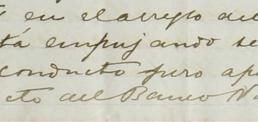 en el arreglo del
tá empujando se
conducto pero apo
cto del Banco Na